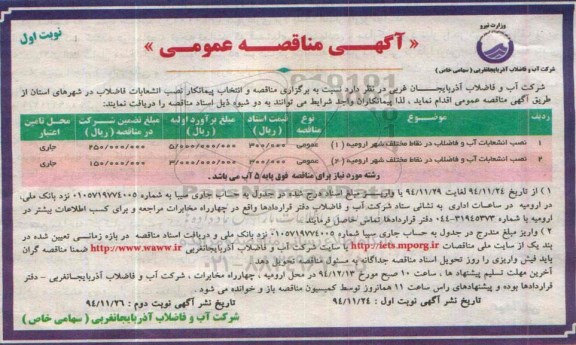 وزارت نیرو
نوبت اول
« آگهی مناقصه عمومی »
شرکت آب و فاضلاب آذربایجانغربی ( سهامی خاص )
شرکت آب و فاضلاب آذربایجــان غربی در نظر دارد نسبت به برگزاری مناقصه و انتخاب پیمانکار نصب انشعابات فاضلاب در شهرهای استان از
طریق آگهی مناقصه عمومی اقدام نماید ، لذا پیمانکاران واجد شرایط می توانند به دو شیوه ذیل اسناد مناقصه را دریافت نمایند:
ردیف موضـــوع نوع مناقصه قیمت اسناد ( ریال ) مبلغ برآورد اولیه ( ریال ) مبلغ تضمین شــرکت در مناقصه ( ریال ) محل تامین اعتبار
۱ نصب انشعابات آب و فاضلاب در نقاط مختلف شهر ارومیه (۱) عمومی ۳۰۰/۰۰۰ ۵/۰۰۰/۰۰۰/۰۰۰ ۲۵۰/۰۰۰/۰۰۰ جاری
۲ نصب انشعابات آب و فاضلاب در نقاط مختلف شهر ارومیه (۲) عمومی ۳۰۰/۰۰۰ ۳/۰۰۰/۰۰۰/۰۰۰ ۱۵۰/۰۰۰/۰۰۰ جاری
رشته مورد نیاز برای مناقصه فوق پایه ۵ آب می باشد .
۱ ) از تاریخ ۹۴/۱۱/۲۴ لغایت ۹۴/۱۱/۲۹ با واریــز مبلغ اسناد درج شده در جدول به حساب جاری سیبا به شماره ۰۱۰۵۷۱۹۷۷۴۰۰۵ نزد بانک ملی،
در ارومیه در ســاعات اداری به نشانی ستاد شرکت آب و فاضلاب دفتر قراردادها واقع در چهارراه مخابرات مراجعه و برای کسب اطلاعات بیشتر در
ارومیه با شماره ۳۱۹۴۵۳۷۳-۰۴۴ دفتر قراردادها تماس حاصل فرمایند.
۲ ) واریز مبلغ مندرج در جدول به حساب جاری سیبا شماره ۰۱۰۵۷۱۹۷۷۴۰۰۵ نزد بانک ملی و دریافت اسناد مناقصه در بازه زمانــی تعیین شده در
بند یک از سایت ملی مناقصات http://iets.mporg.ir یا سایت شرکت آب و فاضلاب آذربایجانغربی http://www.waww.ir ضمنا مناقصه گران
باید فیش واریزی را روز تحویل اسناد مناقصه جداگانه به مسئول مناقصه تحویل دهد
آخرین مهلت تسلیم پیشنهاد ها ، ساعت ۱۰ صبح مورخ ۹۴/۱۲/۱۳ در محل ارومیه ، چهارراه مخابرات ، شرکت آب و فاضلاب آذربایجانغربــی - دفتر
قراردادها بوده و پیشنهادهای راس ساعت ۱۱ همانروز توسط کمیسیون مناقصه باز و خوانده می شود .
تاریخ نشر آگهی نوبت اول : ۹۴/۱۱/۲۴ تاریخ نشر آگهی نوبت دوم : ۹۴/۱۱/۲۶
شرکت آب و فاضلاب آذربایجانغربی ( سهامی خاص )